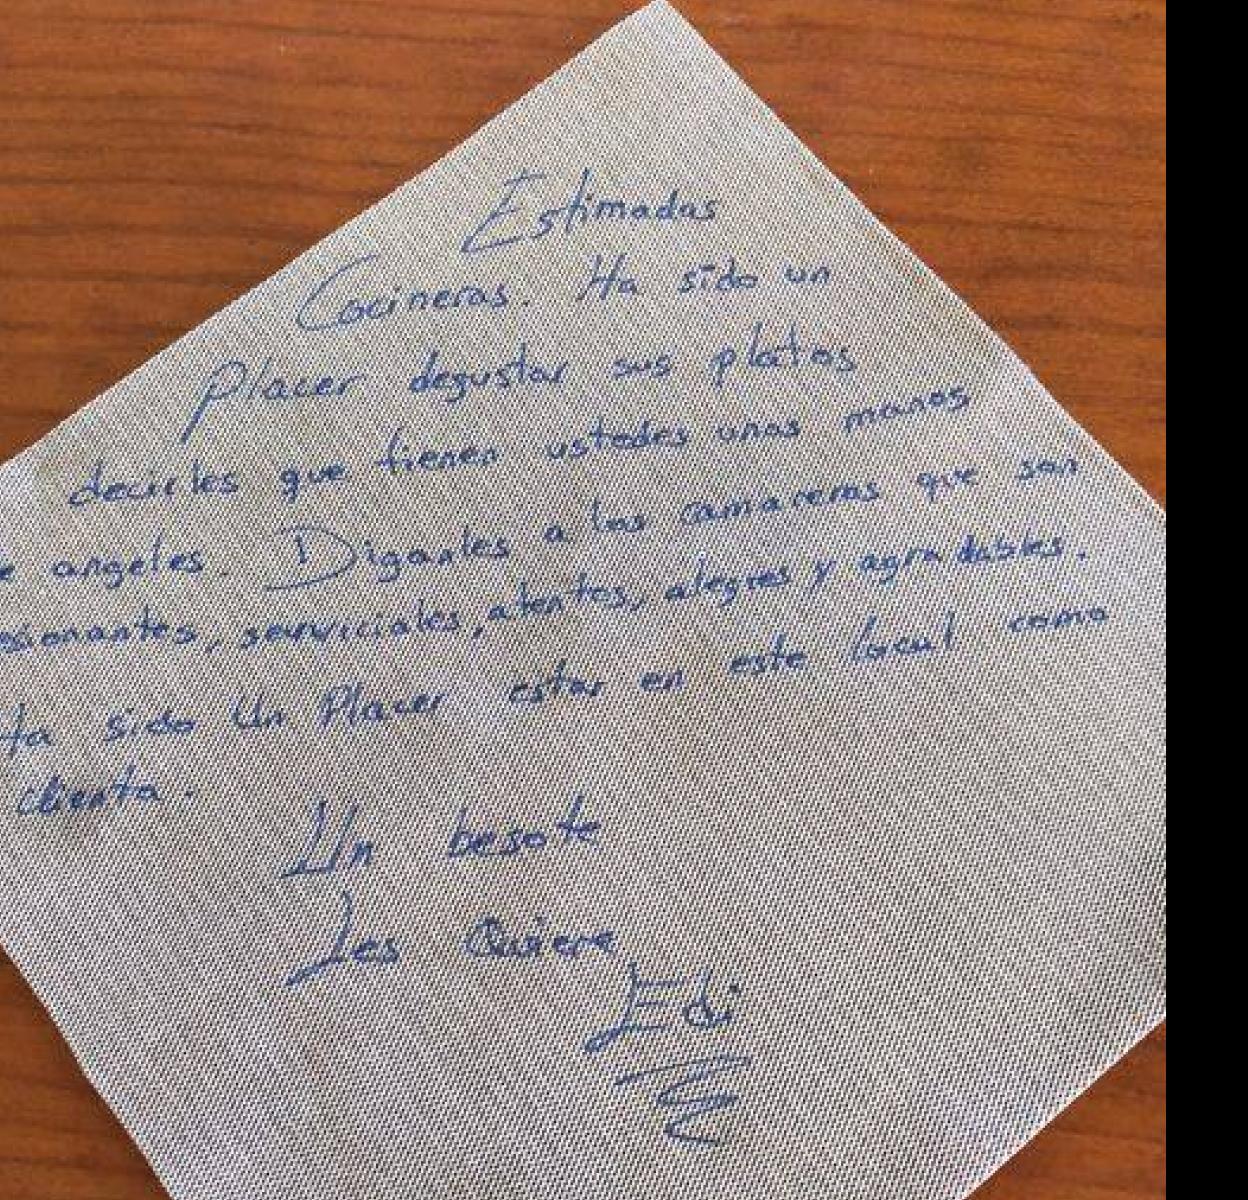 Estimadas
Cocineras. Ha sido un
Placer degustar sus platos
decirles que tienen ustedes unas manos
angeles. Diganles a las camareras que son
serviciales, atentas, alegres y agradables.
Ha sido Un Placer estar en este local como
clienta.
Un besote
Les Quiere
Edi